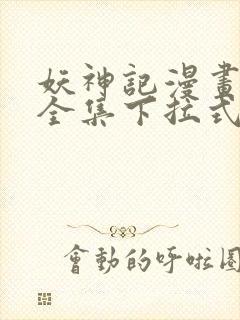 妖神記漫畫
全集下拉式
會動的呼啦圈